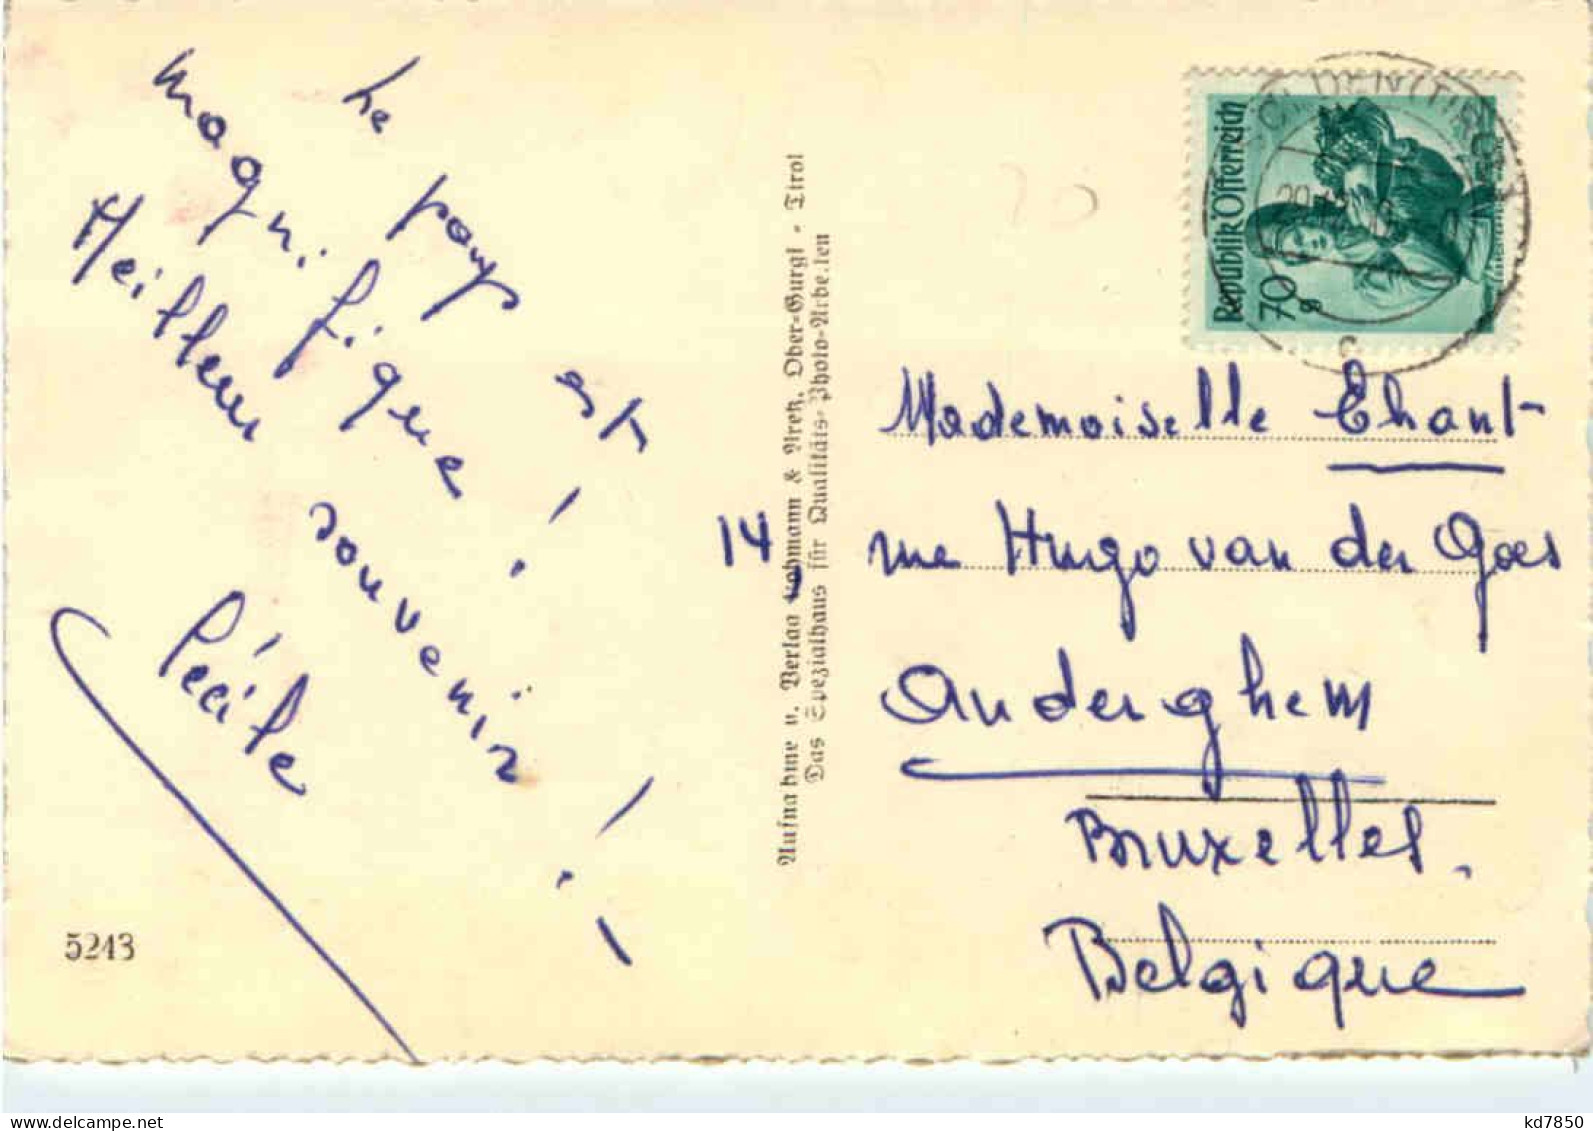 Le pays est
magnifique !
Meilleur souvenir !
Cécile
5213
Aufnahme u. Verlag Lohmann & Arek, Ober-Gurgl - Tirol
Das Spezialhaus für Qualitäts-Photo-Arbeiten
Republik Österreich
70 g
Mademoiselle Ehant
14, rue Hugo van der Goes
Auderghem
Bruxelles.
Belgique
delcampe.net
kd7850